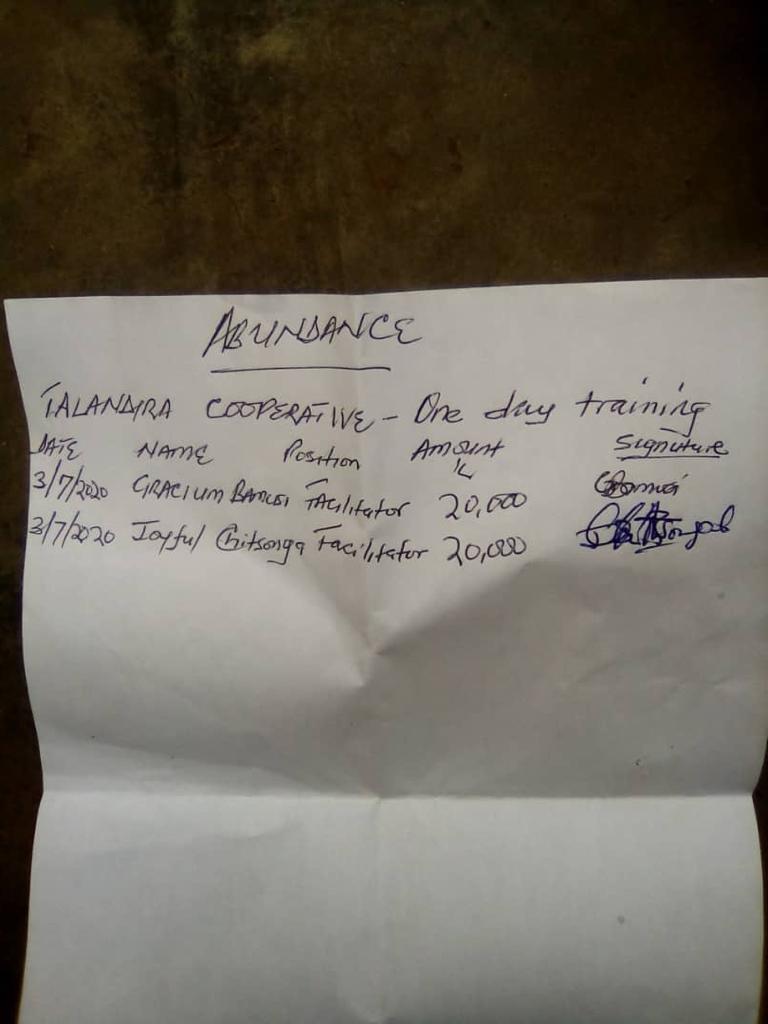 ABUNDANCE
TALANDIRA COOPERATIVE - One day training
DATE NAME Position AMOUNT Signature
K
3/7/2020 GRACIUM BAMUSI FACilitator 20,000
3/7/2020 Joyful Chitsonga Facilitator 20,000